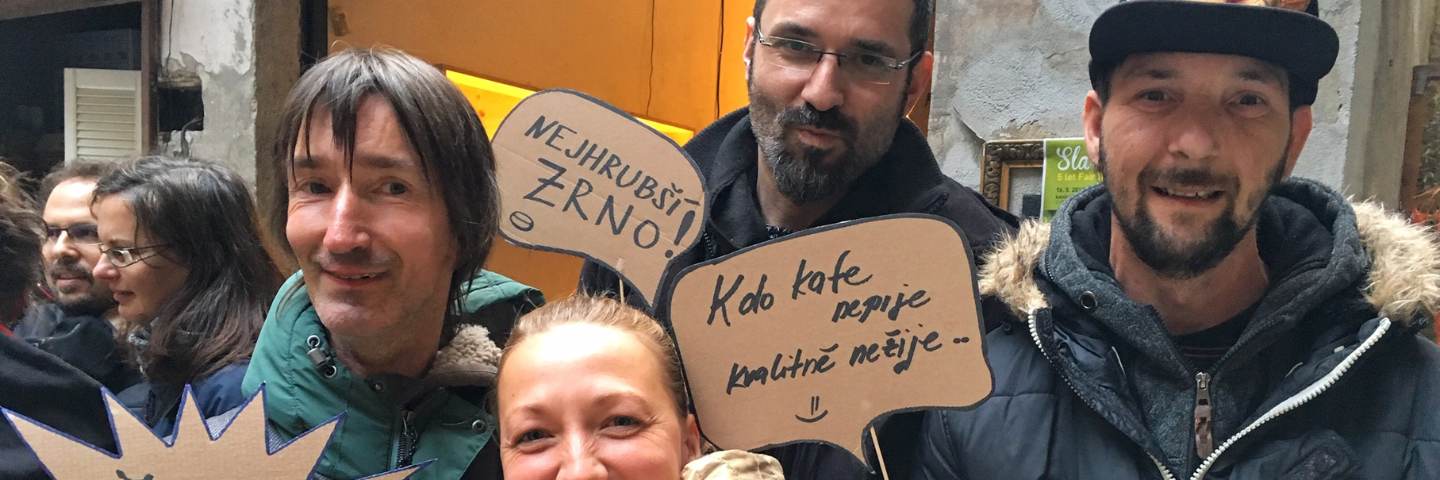 NEJHRUBŠÍ
ZRNO!
Kdo kafe
nepije
kvalitně nežije..
Sla
5 let Fair